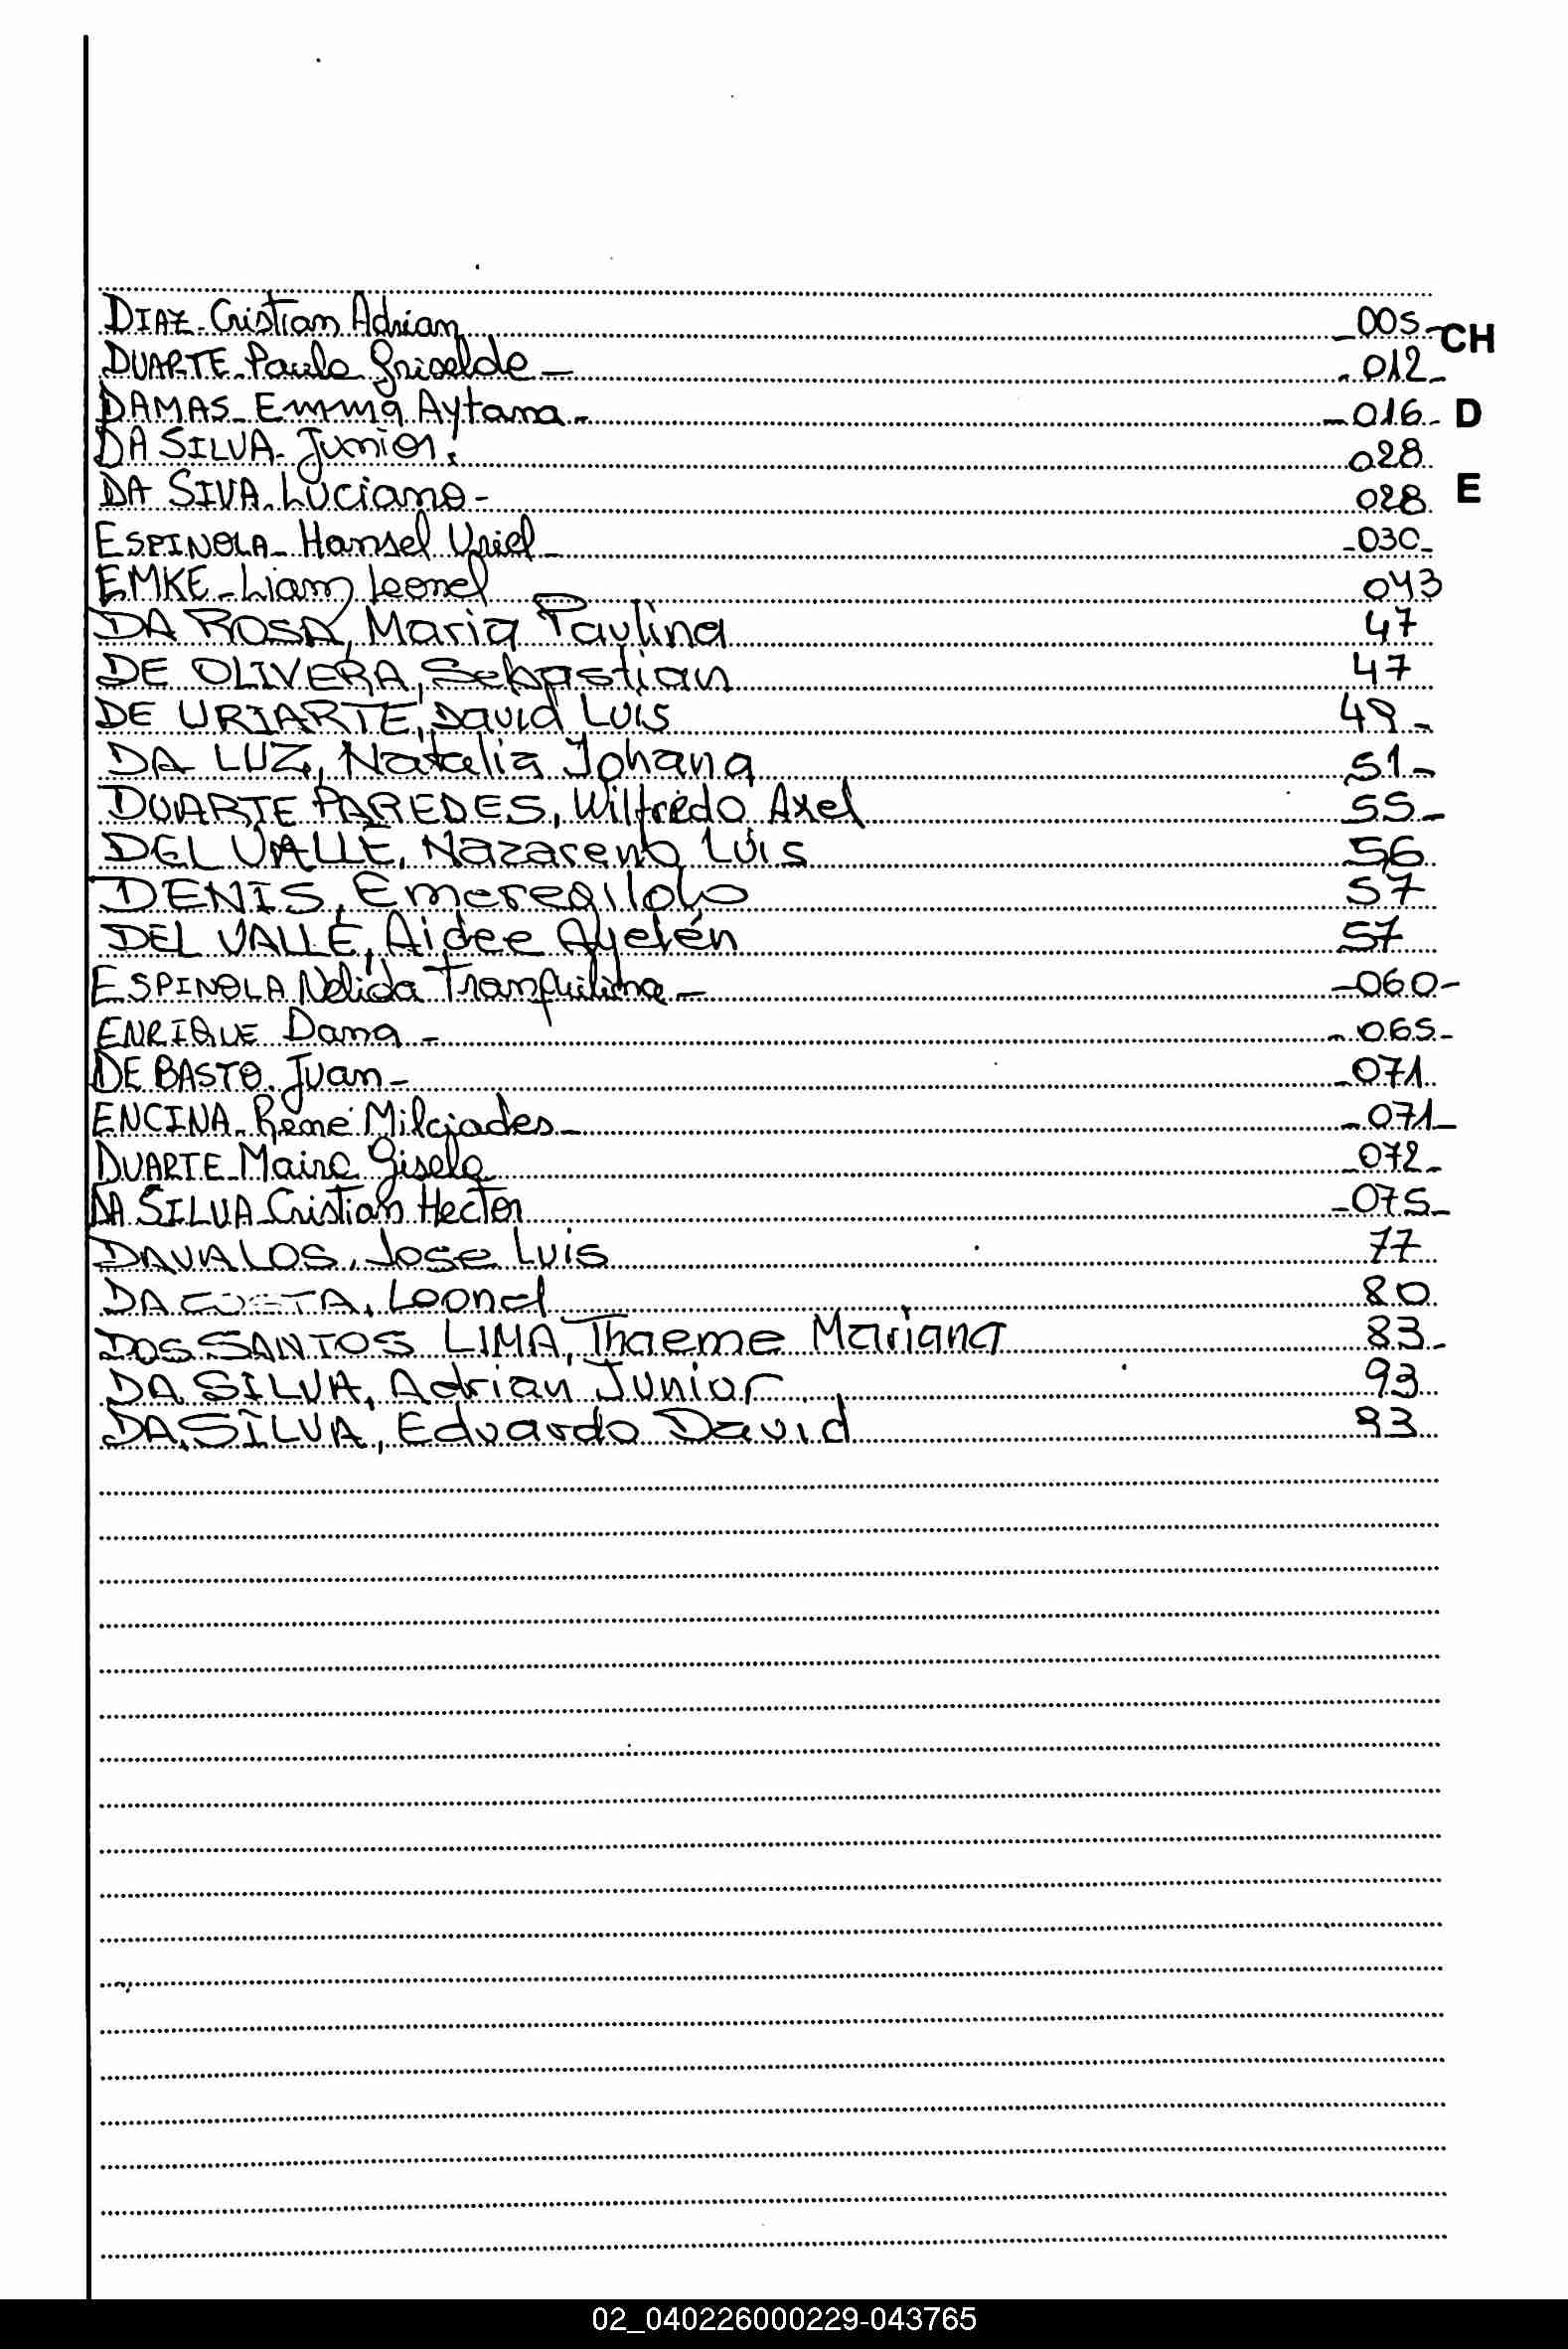 DIAZ - Cristian Adrian 005 - CH
DUARTE - Paula Griselde - 012 -
DAMAS - Emma Aytana - - 016 - D
DA SILVA - Junior. 028
DA SIVA - Luciano - 028 E
ESPINOLA - Hansel Uriel - - 030 -
EMKE - Liam Leonel 043
DA ROSA, Maria Paulina 47
DE OLIVERA, Sebastian 47
DE URIARTE, David Luis 49 -
DA LUZ, Natalia Johana 51 -
DUARTE PAREDES, Wilfredo Axel 55 -
DEL VALLE, Nazareno Luis 56
DENIS, 57
DEL VALLE, Aidee Ayelén 57
ESPINOLA Nelida Tranquilina - - 060 -
ENRIQUE Dana - - 065 -
DE BASTO. Juan - - 071
ENCINA - Rene Milciades - - 071 -
DUARTE - Gisela 072 -
DA SILVA - Cristian Hector - 075 -
DAVALOS, Jose Luis 77
DA COSTA, Leonel 80
DOS SANTOS LIMA, Thaeme Mariana 83 -
DA SILVA, Adrian Junior 93
DA SILVA, Eduardo David 93
02_040226000229-043765